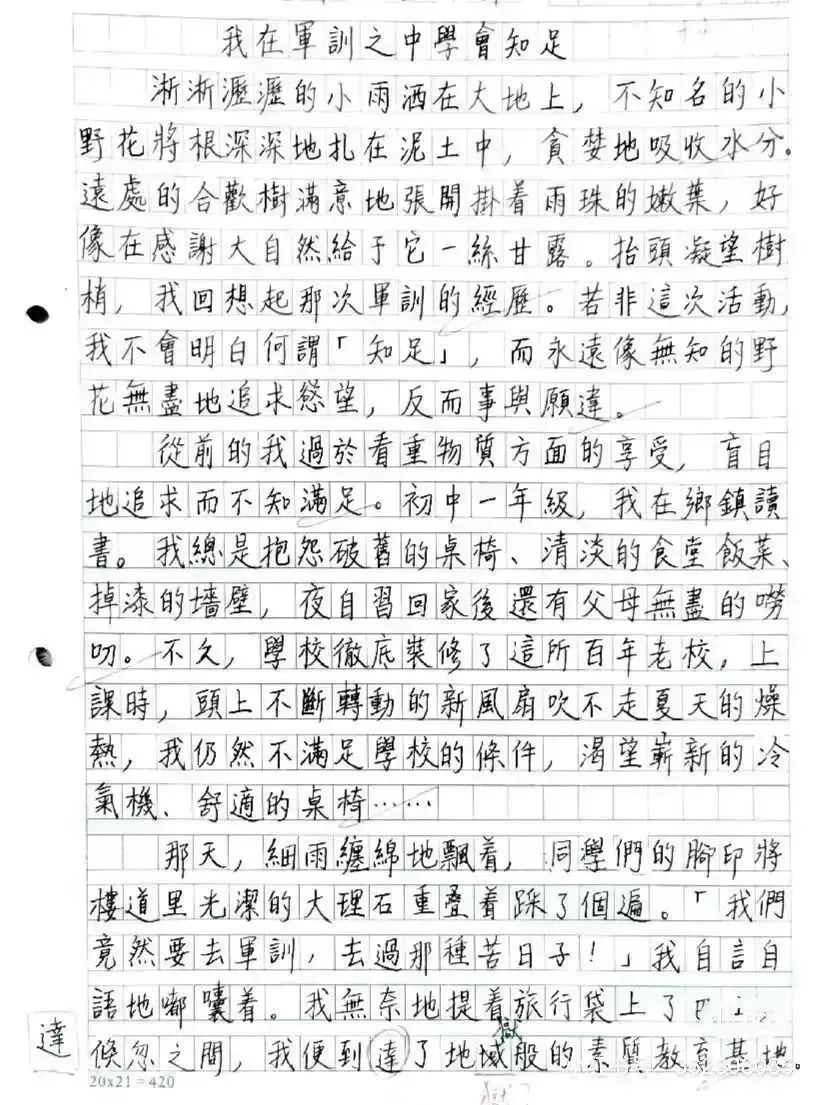 我在軍訓之中學會知足
淅淅瀝瀝的小雨洒在大地上，不知名的小
野花將根深深地扎在泥土中，貪婪地吸收水分。
遠處的合歡樹滿意地張開掛着雨珠的嫩葉，好
像在感謝大自然給于它一絲甘露。抬頭凝望樹
梢，我回想起那次軍訓的經歷。若非這次活動，
我不會明白何謂「知足」，而永遠像無知的野
花無盡地追求慾望，反而事與願違。
從前的我過於看重物質方面的享受，盲目
地追求而不知滿足。初中一年級，我在鄉鎮讀
書。我總是抱怨破舊的桌椅、清淡的食堂飯菜、
掉漆的墻壁，夜自習回家後還有父母無盡的嘮
叨。不久，學校徹底裝修了這所百年老校，上
課時，頭上不斷轉動的新風扇吹不走夏天的燥
熱，我仍然不滿足學校的條件，渴望嶄新的冷
氣機、舒適的桌椅……
那天，細雨纏綿地飄着，同學們的腳印將
樓道里光潔的大理石重疊着踩了個遍。「我們
竟然要去軍訓，去過那種苦日子！」我自言自
語地嘟囔着。我無奈地提着旅行袋上了巴
獄
達
倏忽之間，我便到達了地域般的素質教育基地。
20x21=420